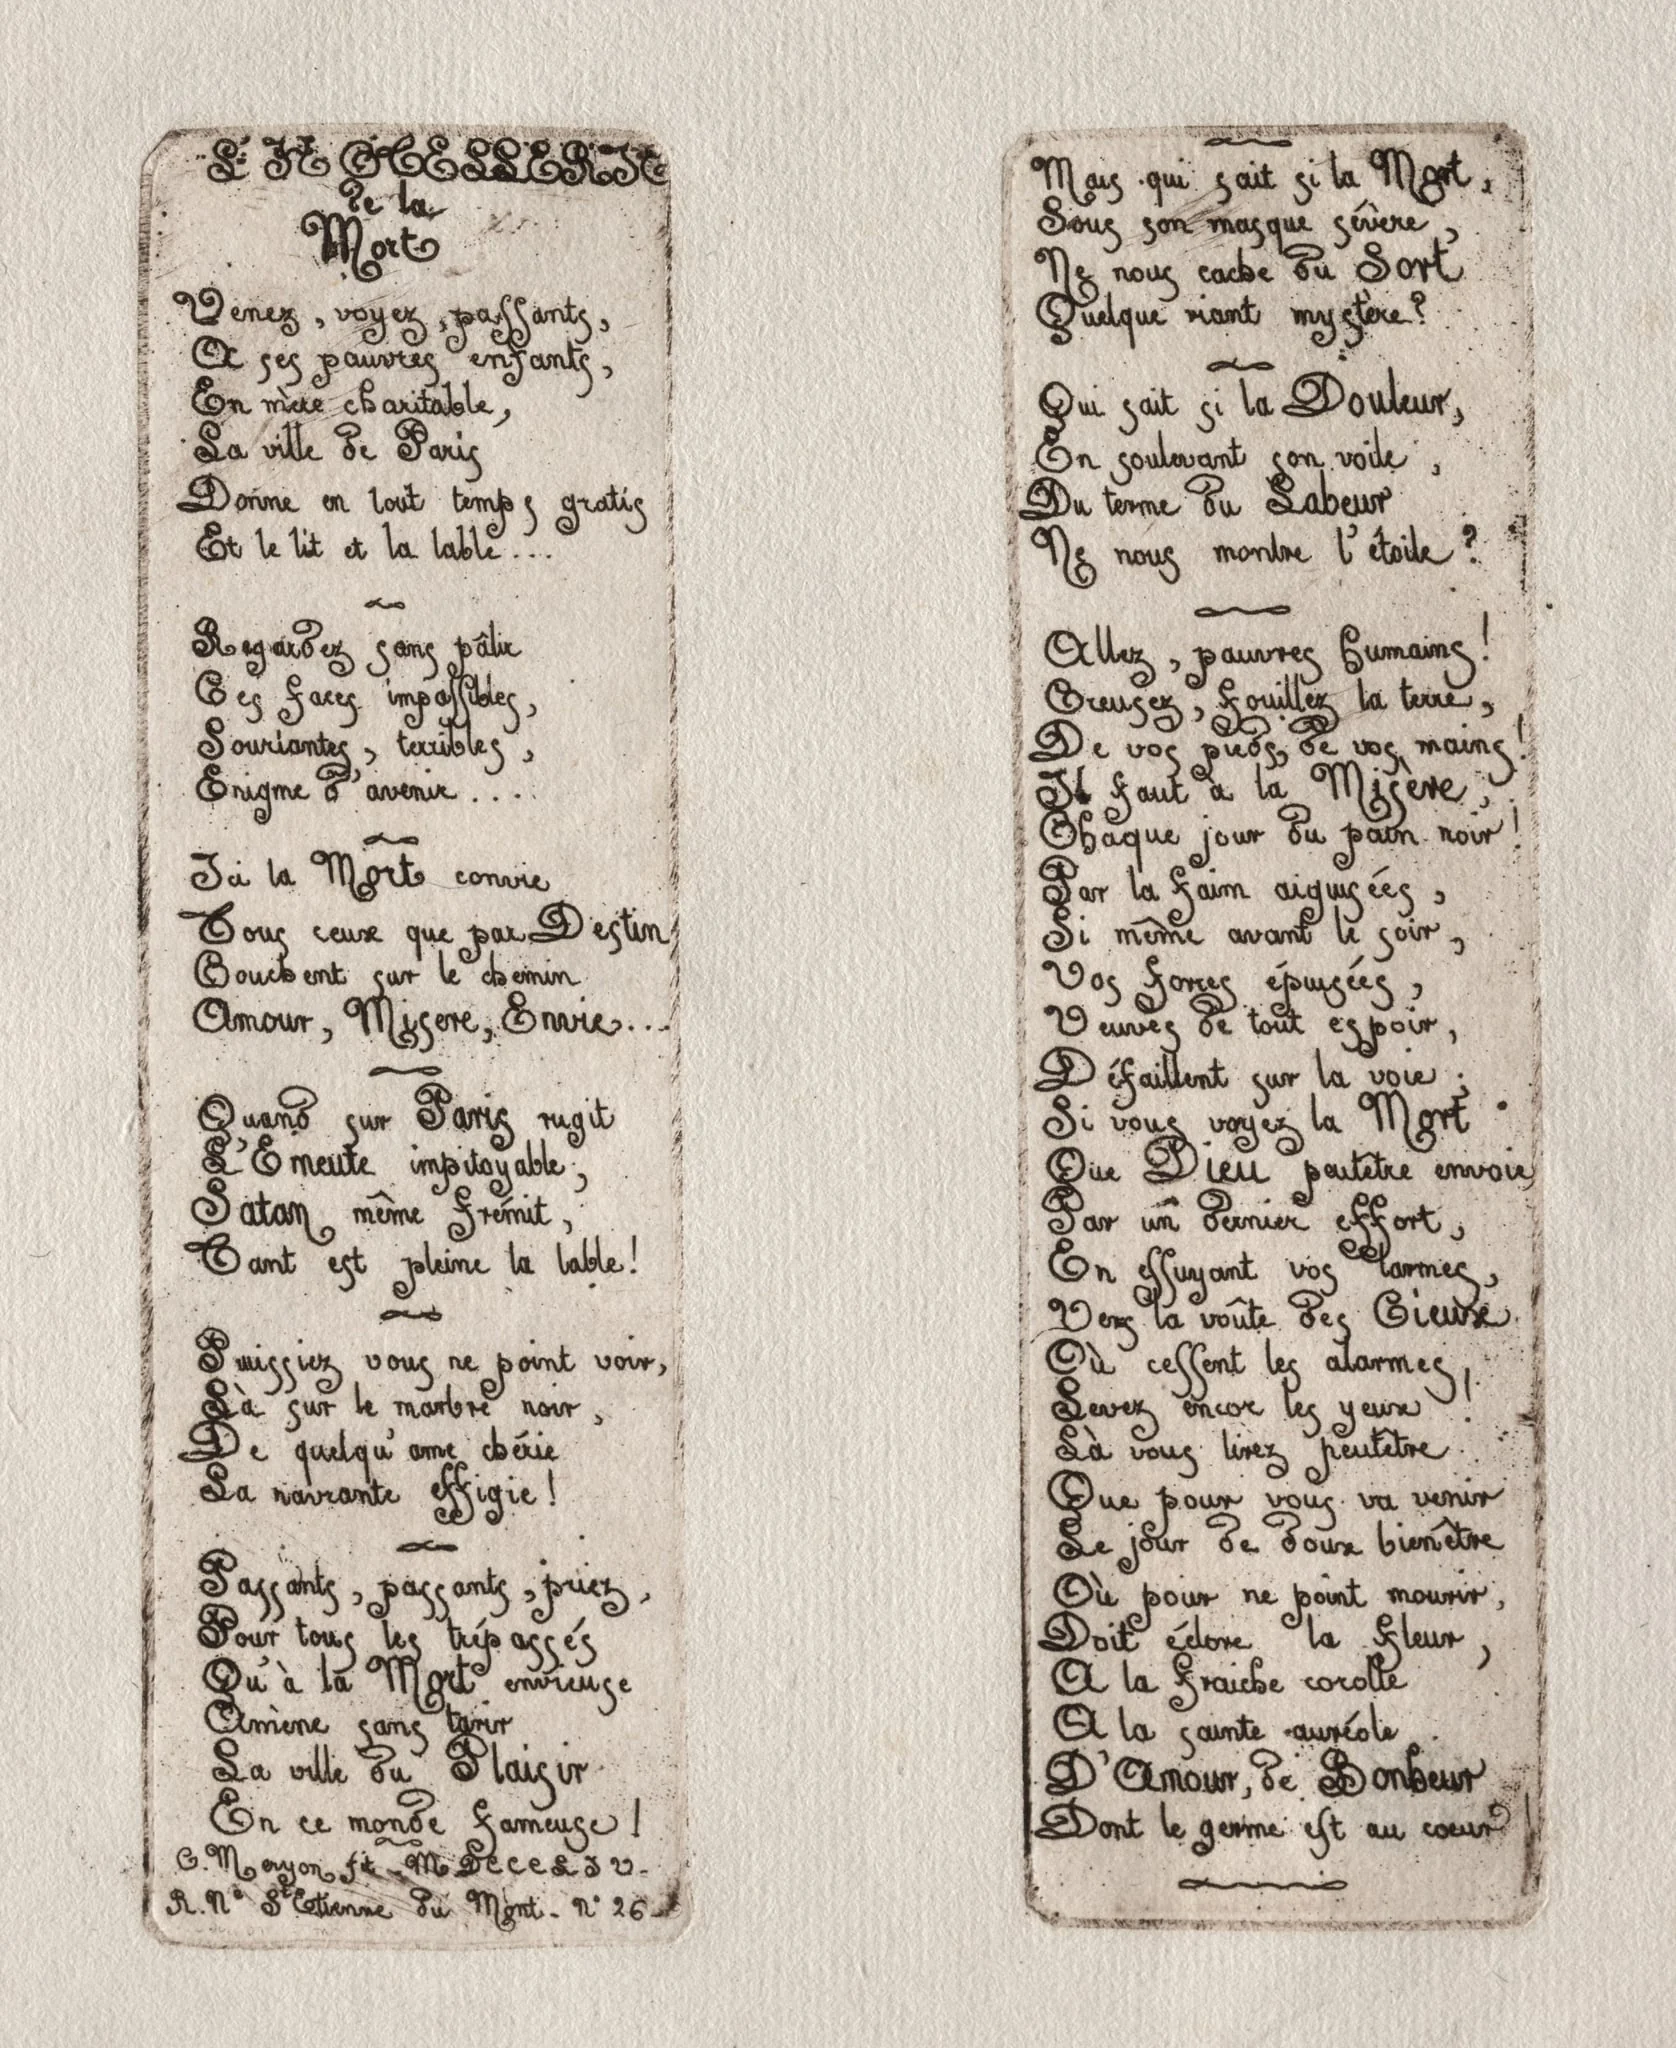 L'HOTELLERIE
de la
Mort
Venez, voyez, passants,
A ses pauvres enfants,
En mère charitable,
La ville de Paris
Donne en tout temps gratis
Et le lit et la table....
Regardez sans pâlir
Ces faces impassibles,
Souriantes, terribles,
Enigme d'avenir....
Ici la Mort convie
Tous ceux que par Destin
Couchent sur le chemin
Amour, Misere, Envie...
Quand sur Paris rugit
L'Emeute impitoyable,
Satan même frémit,
Tant est pleine la table!
Puissiez vous ne point voir,
Là sur le marbre noir,
De quelqu'ame chérie
La navrante effigie!
Passants, passants, priez,
Pour tous les trépassés
Qu'à la Mort envieuse
Amène sans tarir
La ville du Plaisir
En ce monde fameuse!
C. Meryon fit - MDCCCLIV -
R. Nve St Etienne du Mont - No 26 -
Mais qui sait si la Mort,
Sous son masque sévère,
Ne nous cache du Sort
Quelque riant mystère?
Qui sait si la Douleur,
En soulevant son voile,
Du terme du Labeur
Ne nous montre l'étoile?
Allez, pauvres humains!
Creusez, fouillez la terre,
De vos pieds, de vos mains!
Il faut à la Misère,
Chaque jour du pain noir!
Par la faim aiguisées,
Si même avant le soir,
Vos forces épuisées,
Veuves de tout espoir,
Défaillent sur la voie;
Si vous voyez la Mort
Que Dieu peutêtre envoie,
Par un dernier effort,
En essuyant vos larmes,
Vers la voûte des Cieux
Où cessent les alarmes,
Levez encor les yeux!
Là vous lirez peutêtre
Que pour vous va venir
Le jour de doux bienêtre
Où pour ne point mourir,
Doit éclore la fleur,
A la fraiche corolle
A la sainte auréole
D'Amour, de Bonheur
Dont le germe est au coeur!